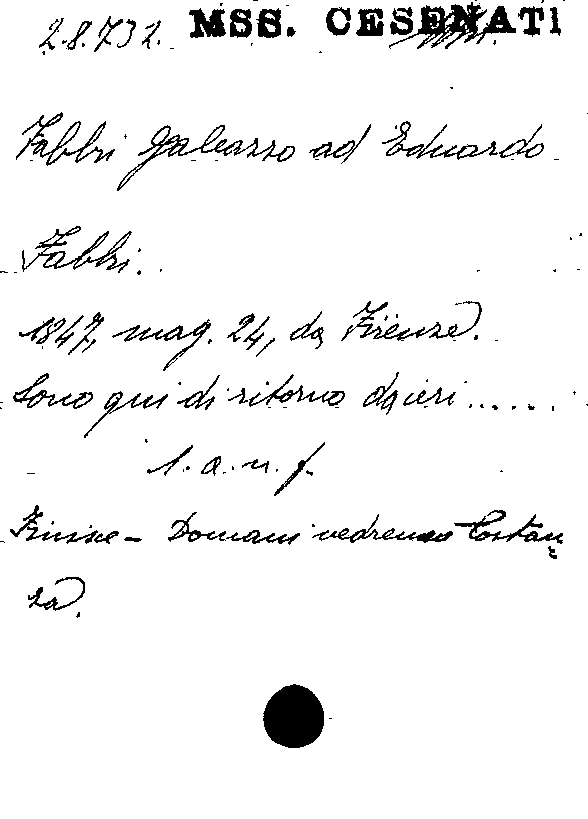 2.8.732. MSS. CESENATI
Fabbri Galeazzo ad Eduardo
Fabbri.
1847, mag. 24, da Firenze.
Sono qui di ritorno da ieri......
1. a. n. f.
Finisce - Domani vedremo Costan
za.